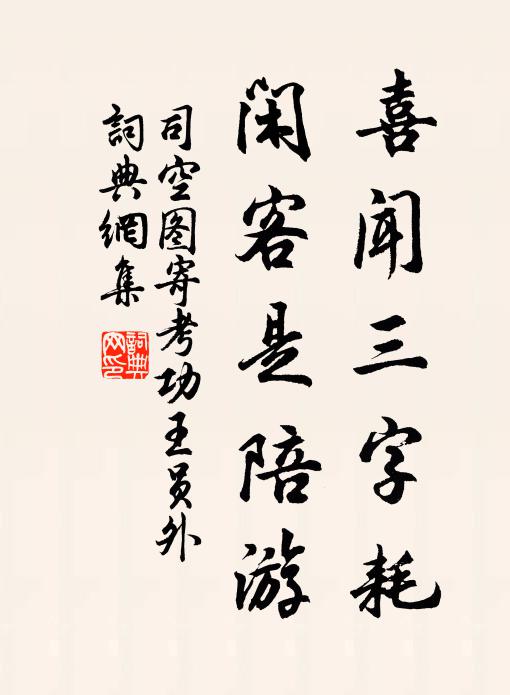 喜闻三字耗
闲客是陪游
司空图寄考功王员外
詞典網集
詞典网印